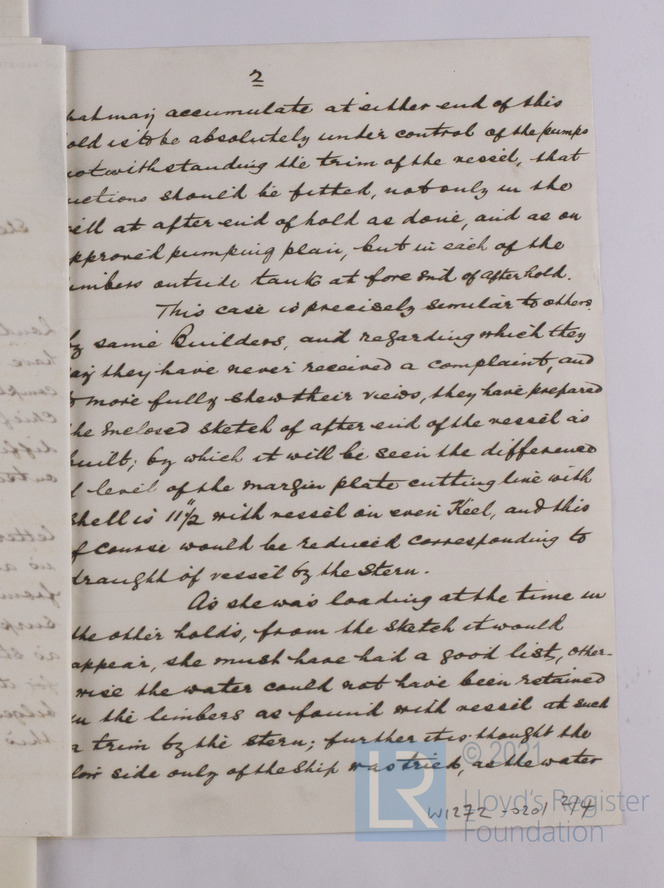 2
that may accumulate at either end of this
hold is to be absolutely under control of the pumps
notwithstanding the trim of the vessel, that
suctions should be fitted, not only in the
well at after end of hold as done, and as on
approved pumping plan, but in each of the
limbers outside tank at fore end of after hold.
This case is precisely similar to others
by same Builders, and regarding which they
say they have never received a complaint, and
to more fully shew their views, they have prepared
the enclosed sketch of after end of the vessel as
built; by which it will be seen the difference
of level of the margin plate cutting line with
shell is 11"/2 with vessel on even Keel, and this
of course would be reduced corresponding to
draught of vessel by the stern.
As she was loading at the time in
the other holds, from the sketch it would
appear, she must have had a good list, other-
wise the water could not have been retained
in the limbers as found with vessel at such
a trim by the stern; further it is thought the
low side only of the ship was tried, as the water
W1272-0201 2/4
LR
© 2021
Lloyd's Register
Foundation